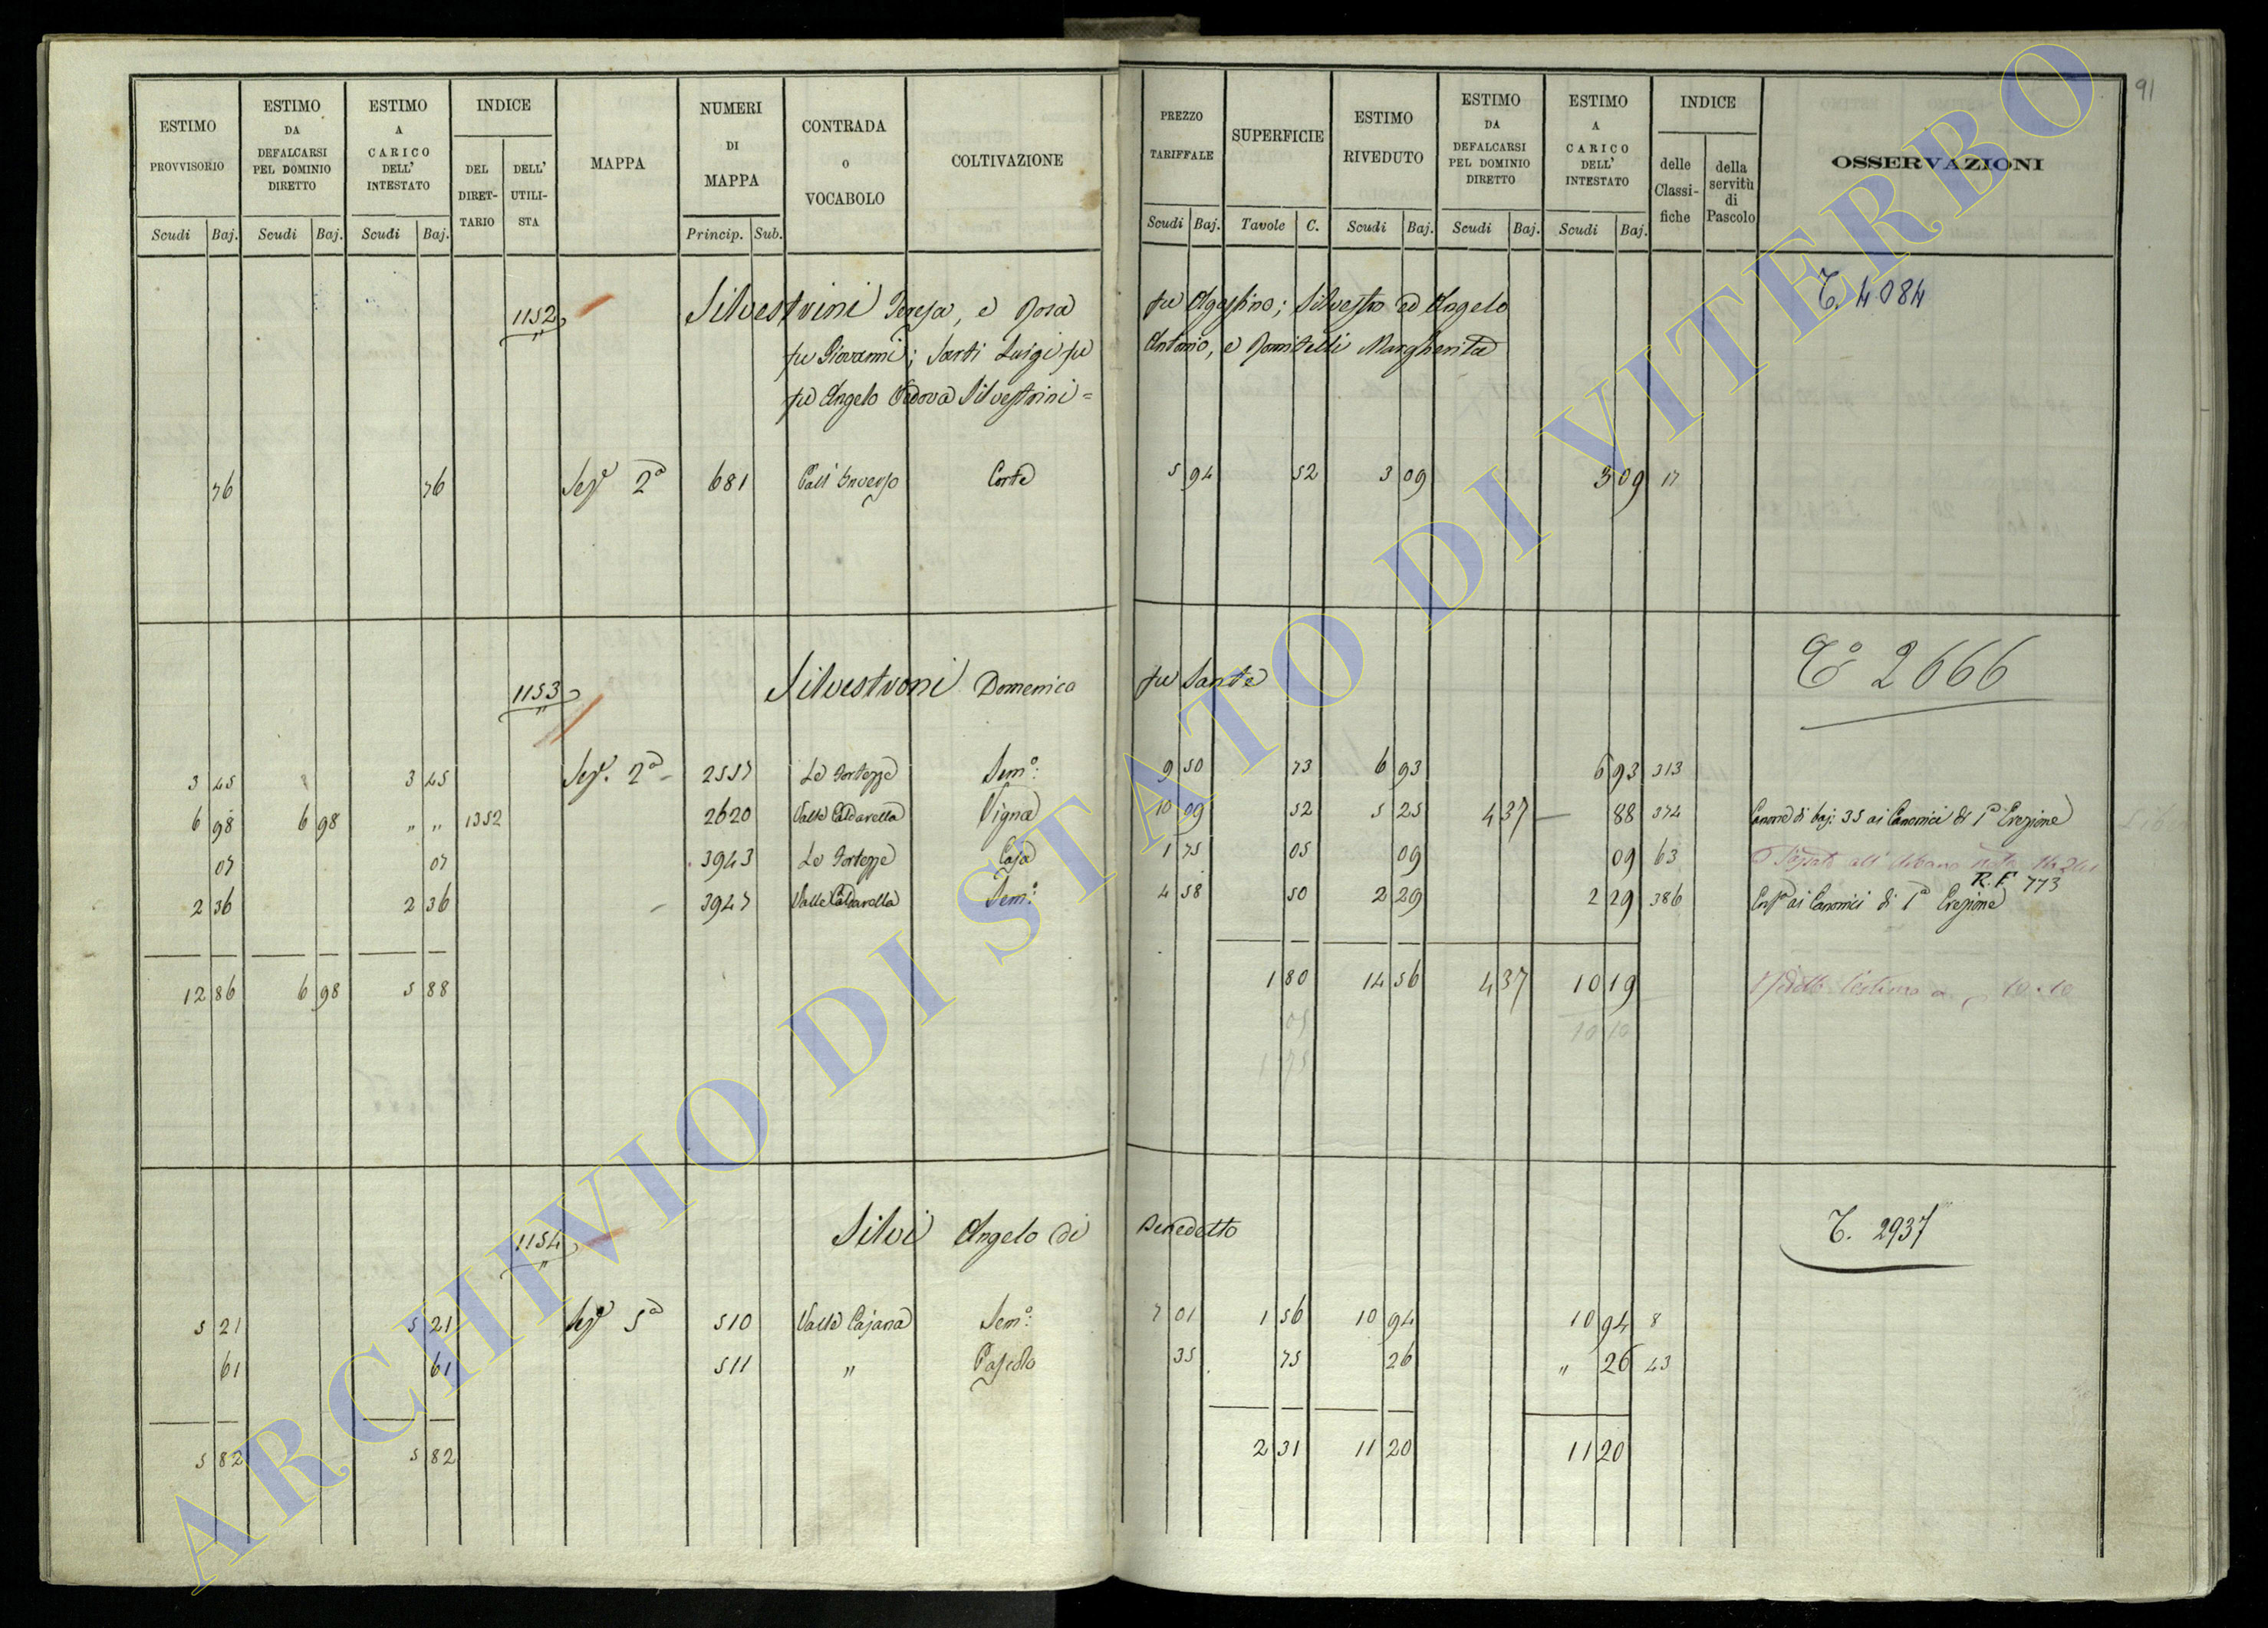 91
ESTIMO PROVVISORIO ESTIMO DA DEFALCARSI PEL DOMINIO DIRETTO ESTIMO A CARICO DELL' INTESTATO INDICE MAPPA NUMERI DI MAPPA CONTRADA o VOCABOLO COLTIVAZIONE PREZZO TARIFFALE SUPERFICIE ESTIMO RIVEDUTO ESTIMO DA DEFALCARSI PEL DOMINIO DIRETTO ESTIMO A CARICO DELL' INTESTATO INDICE OSSERVAZIONI
DEL DIRET-TARIO DELL' UTILI-STA delle Classi-fiche della servitù di Pascolo
Scudi Baj. Scudi Baj. Scudi Baj. Princip. Sub. Scudi Baj. Tavole C. Scudi Baj. Scudi Baj. Scudi Baj.
1152 Silvestrini Teresa, e Rosa fu Agostino; Silvestro ed Angelo T. 4084
fu Giovanni; Sarti Luigi fu Antonio, e Margherita
fu Angelo Vedova Silvestrini =
76 76 Sez.e 2a 681 Corte 5 94 52 3 09 3 09 17
1153 Silvestroni Domenico fu Sante To 2666
3 45 3 45 Sez. 2a 2557 Le Fortezze Sem.o 9 50 73 6 93 6 93 313
6 98 6 98 " " 1352 2620 Valle Caldarella Vigna 10 09 52 5 25 4 37 88 374 Canone di baj: 35 ai Canonici di 1a Erezione
07 07 3943 Le Fortezze Casa 1 75 05 09 09 63 Passato all' Urbano
R.F. 773
2 36 2 36 3947 Valle Caldarella Sem.o 4 58 50 2 29 2 29 386 ai Canonici di 1a Erezione
12 86 6 98 5 88 1 80 14 56 4 37 10 19 l'estimo a 10.10
05 10 10
1 75
1154 Silvi Angelo di Benedetto T. 2937
5 21 5 21 Sez.e 5a 510 Valle Cajana Sem.o 7 01 1 56 10 94 10 94 8
61 61 511 " Pascolo 35 75 26 " 26 43
5 82 5 82 2 31 11 20 11 20
ARCHIVIO DI STATO DI VITERBO